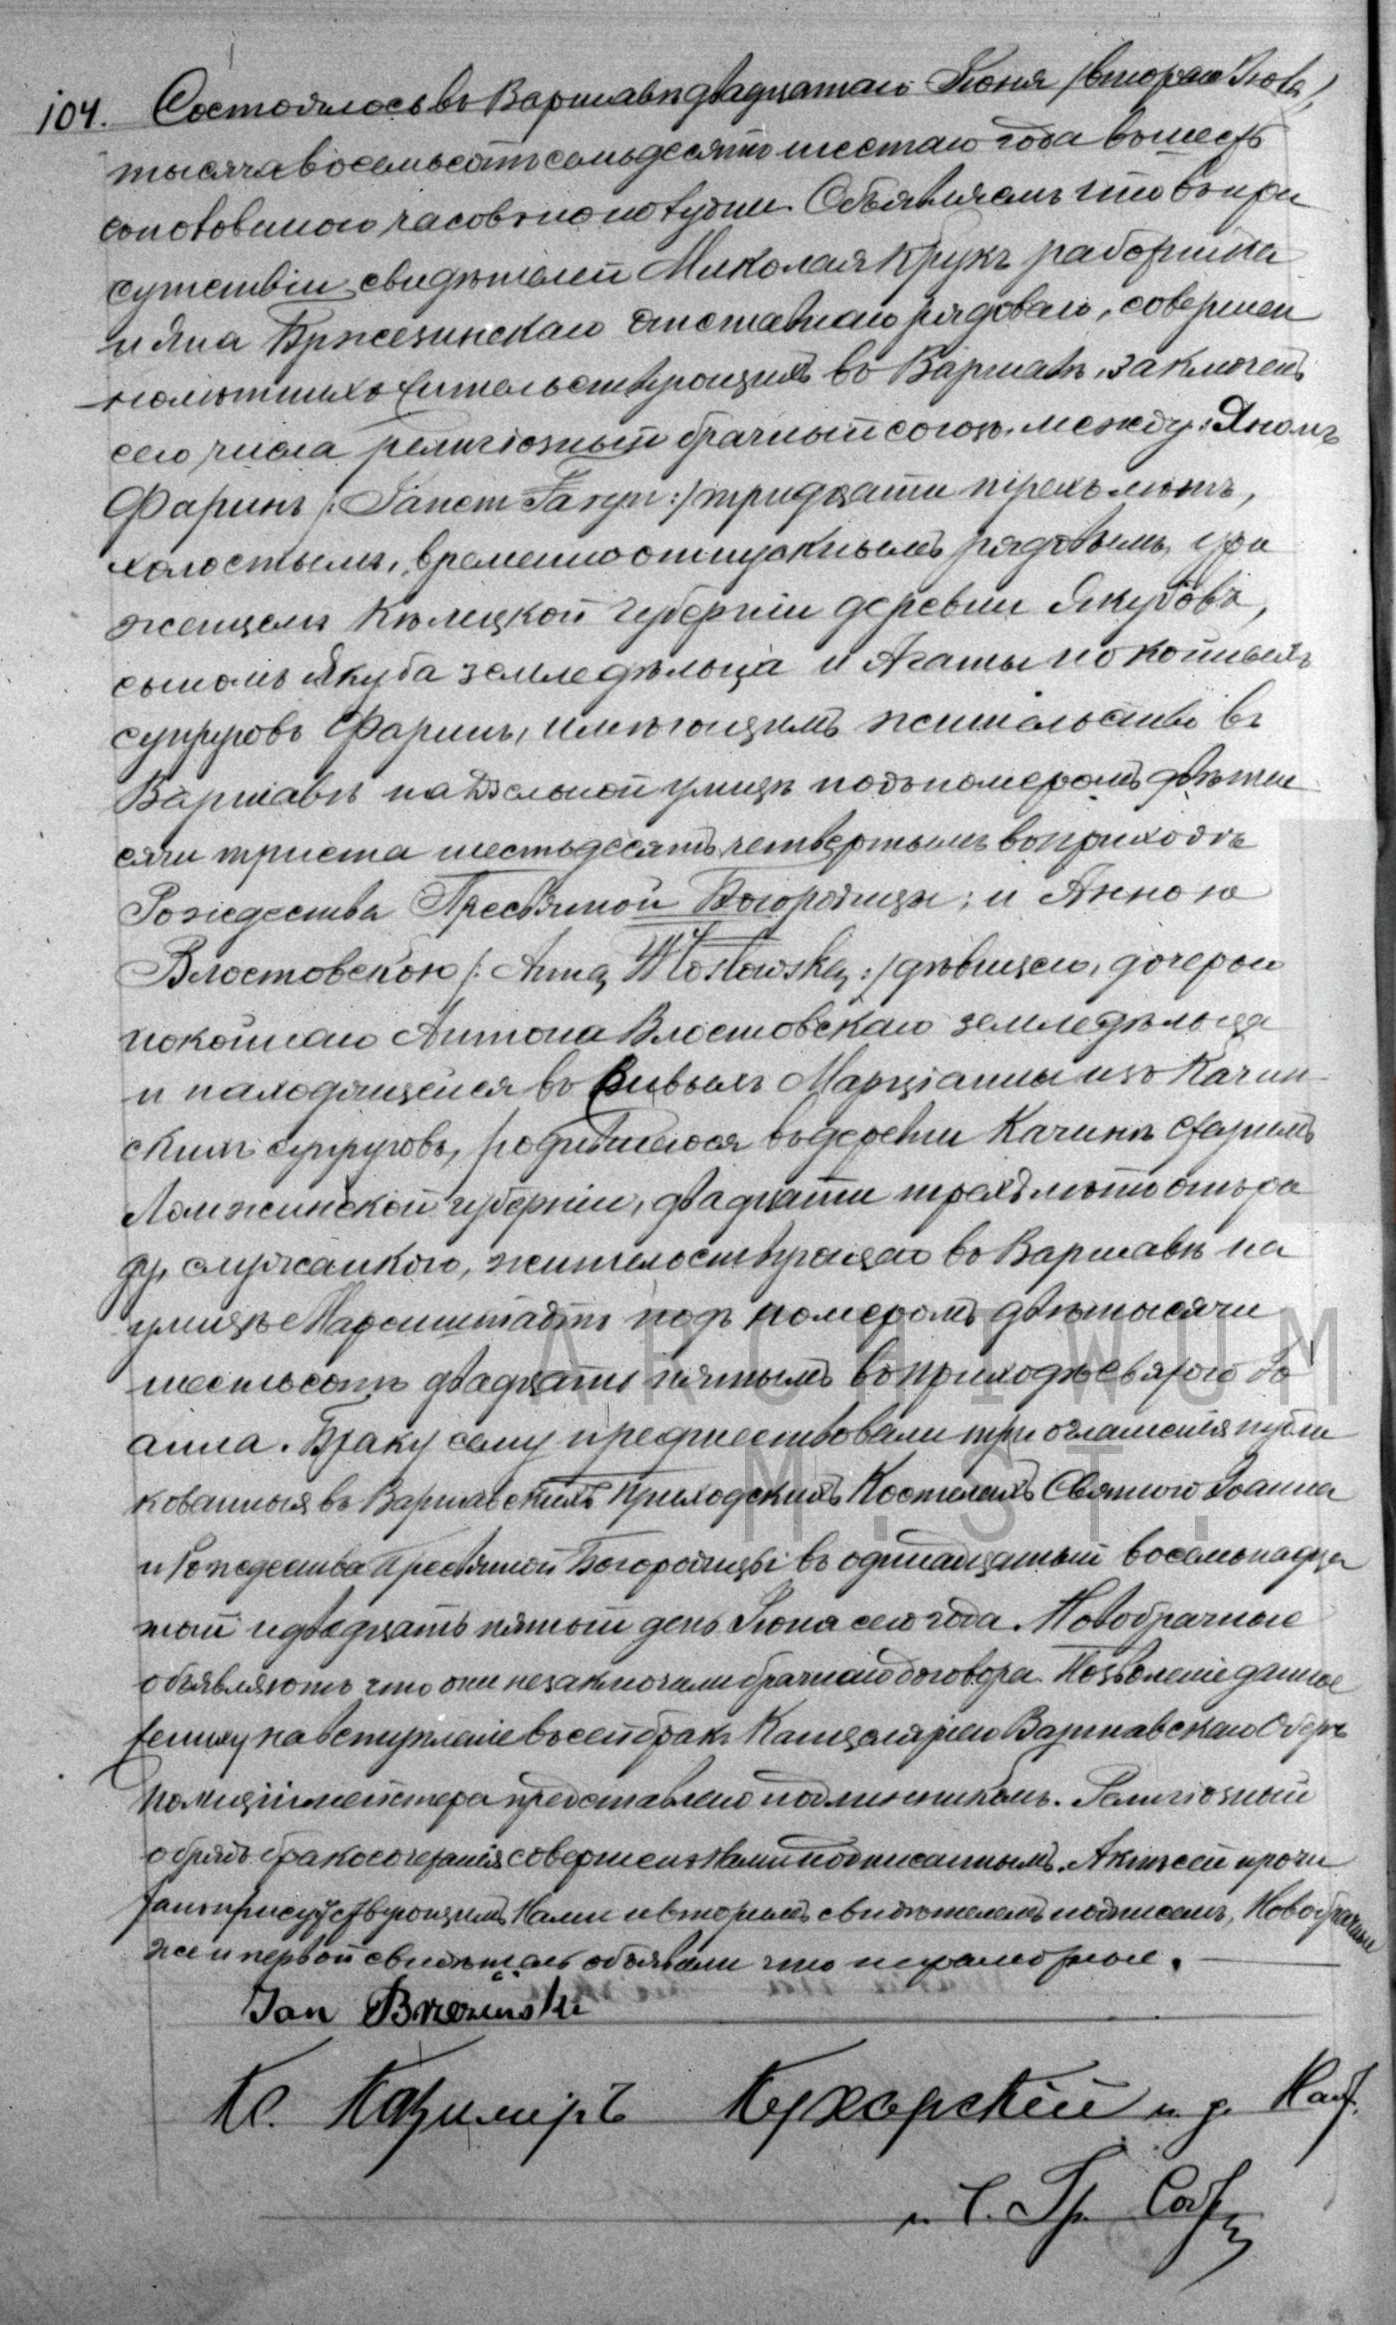 104. Состоялось въ Варшавѣ двадцатаго Іюня /втораго Іюля/
тысяча восемьсотъ семьдесятъ шестаго года въ шесть
съ половиною часовъ по полудни. Объявляемъ что въ при
сутствіи свидѣтелей Миколая Крукъ работника
и Яна Бржезинскаго отставнаго рядоваго, совершен
нолѣтнихъ жительствующихъ въ Варшавѣ, заключенъ
сего числа религіозный брачный союзъ между: Яномъ
Фаринъ /: :/ тридцати трехъ лѣтъ,
холостымъ, временно отпускнымъ рядовымъ, уро
женцемъ Кѣлецкой Губерніи деревни Якубовъ,
сыномъ Якуба земледѣльца и Агаты покойныхъ
супруговъ Фаринъ, имѣющимъ жительство въ
Варшавѣ на Дѣльной улицѣ подъ номеромъ двѣ ты
сячи триста шестьдесятъ четвертымъ въ приходѣ
Рождества Пресвятой Богородицы; и Анною
Влостовскою /: Anna Włostowska :/ дѣвицею, дочерью
покойнаго Антона Влостовскаго земледѣльца
и находящейся въ живыхъ Марціанны изъ Качин
скихъ супруговъ, родившеюся въ деревни Качинъ Старый
Ломжинской губерніи, двадцати трехъ лѣтъ отъ ро
ду, служанкою, жительствующею въ Варшавѣ на
улицѣ Маріенштадтъ подъ номеромъ двѣ тысячи
шестьсотъ двадцать пятымъ въ приходѣ Святого Іо
анна. Браку сему предшествовали три оглашенія публи
кованныя въ Варшавскихъ Приходскихъ Костелахъ Святого Іоанна
и Рождества Пресвятой Богородицы въ одинадцатый восемьнадца
тый и двадцать пятый день Іюня сего года. Новобрачные
объявляютъ что они незаключали брачнаго договора. Позволеніе данное
жениху на вступленіе въ сей бракъ Канцеляріею Варшавскаго Оберъ
Полиціймейстера представлено подлинникомъ. Религіозный
обрядъ бракосочетанія совершенъ Нами подписаннымъ. Актъ сей прочи
танъ присутствующимъ Нами и вторымъ свидѣтелемъ подписанъ, Новобрачные
же и первой свидѣтель объявили что неграмотные.
Jan Brzezinski
К. Казиміръ Кухарскій и. д. Наст.
и Ч. Гр. Сост
ARCHIWUM
M. ST.